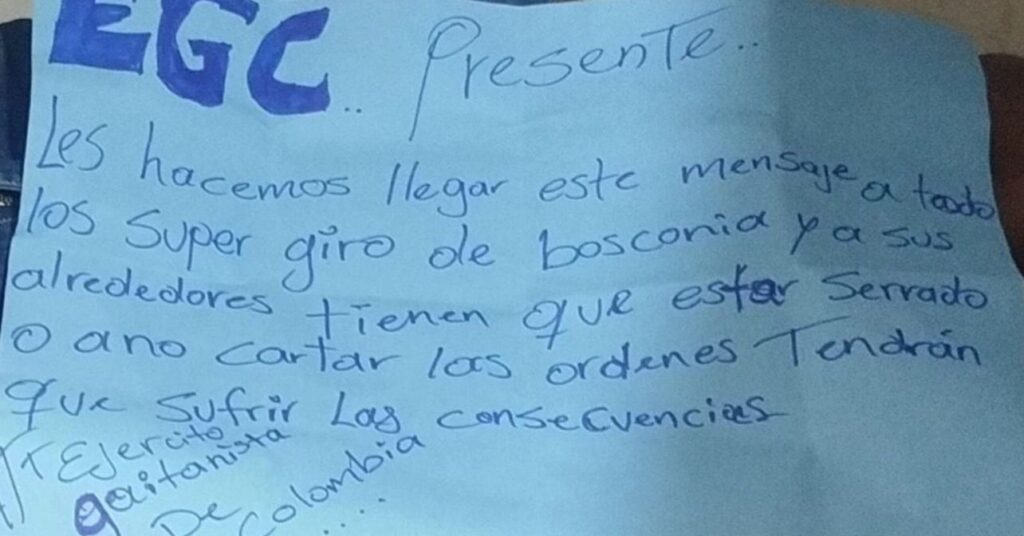 EGC.. Presente..
Les hacemos llegar este mensaje a toodo
los super giro de bosconia y a sus
alrededores tienen que estar Serrado
o ano cartar las ordenes Tendrán
que sufrir Las consecuencias
Ejercito
gaitanista
De colombia
....